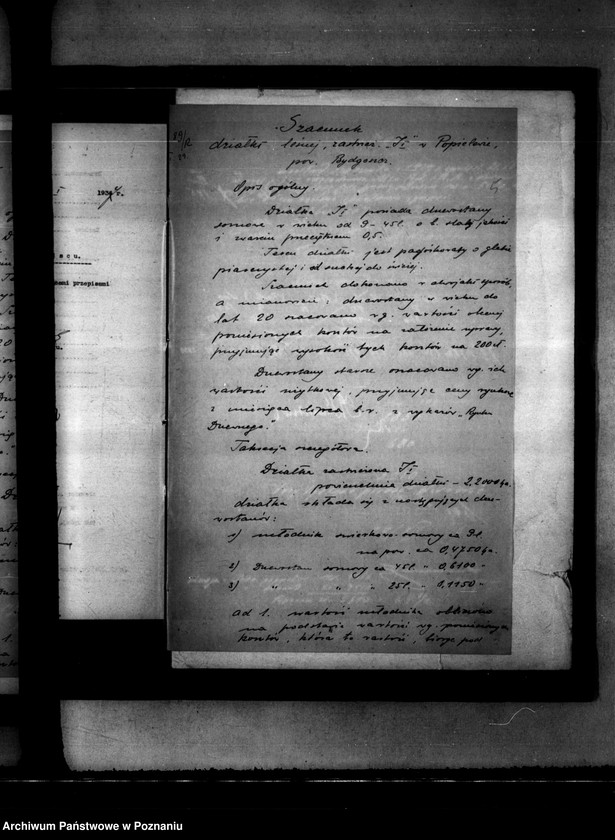 193
s c u.
emi przepisami
Szacunek
działki leśnej, zastrzeż. "I" w Popielewie,
pow. Bydgoszcz.
Opis ogólny.
Działka "I" posiada drzewostany
sosnowe w wieku od 9-45 l. o b. słabej jakości
i zwarciu przeciętnem 0,5.
Teren działki jest pagórkowaty o glebie
piaszczystej i suchej do świeżej.
Szacunek dokonano w dwojaki sposób,
a mianowicie: drzewostany w wieku do
lat 20 oszacowano wg. wartości obecnej
poniesionych kosztów na założenie uprawy,
przyjmując wysokość tych kosztów na 200 zł.
Drzewostany starsze oszacowano wg. ich
wartości użytkowej, przyjmując ceny rynkowe
z miesiąca lipca b.r. z wykazów "Rynku
Drzewnego."
Taksacja szczegółowa.
Działka zastrzeżona I
powierzchnia działki - 2,2000 ha.
działka składa się z następujących drze-
wostanów:
1) młodnik sosnowy ca 9 l.
na pow. ca 0,4750 ha.
2) Drzewostan sosnowy ca 45 l. " 0,6100 "
3) " " " 25 l. " 0,1150 "
Ad 1. wartość młodnika obliczono
na podstawie wartości wg. poniesionych
kosztów, która to wartość, biorąc pod
Archiwum Państwowe w Poznaniu